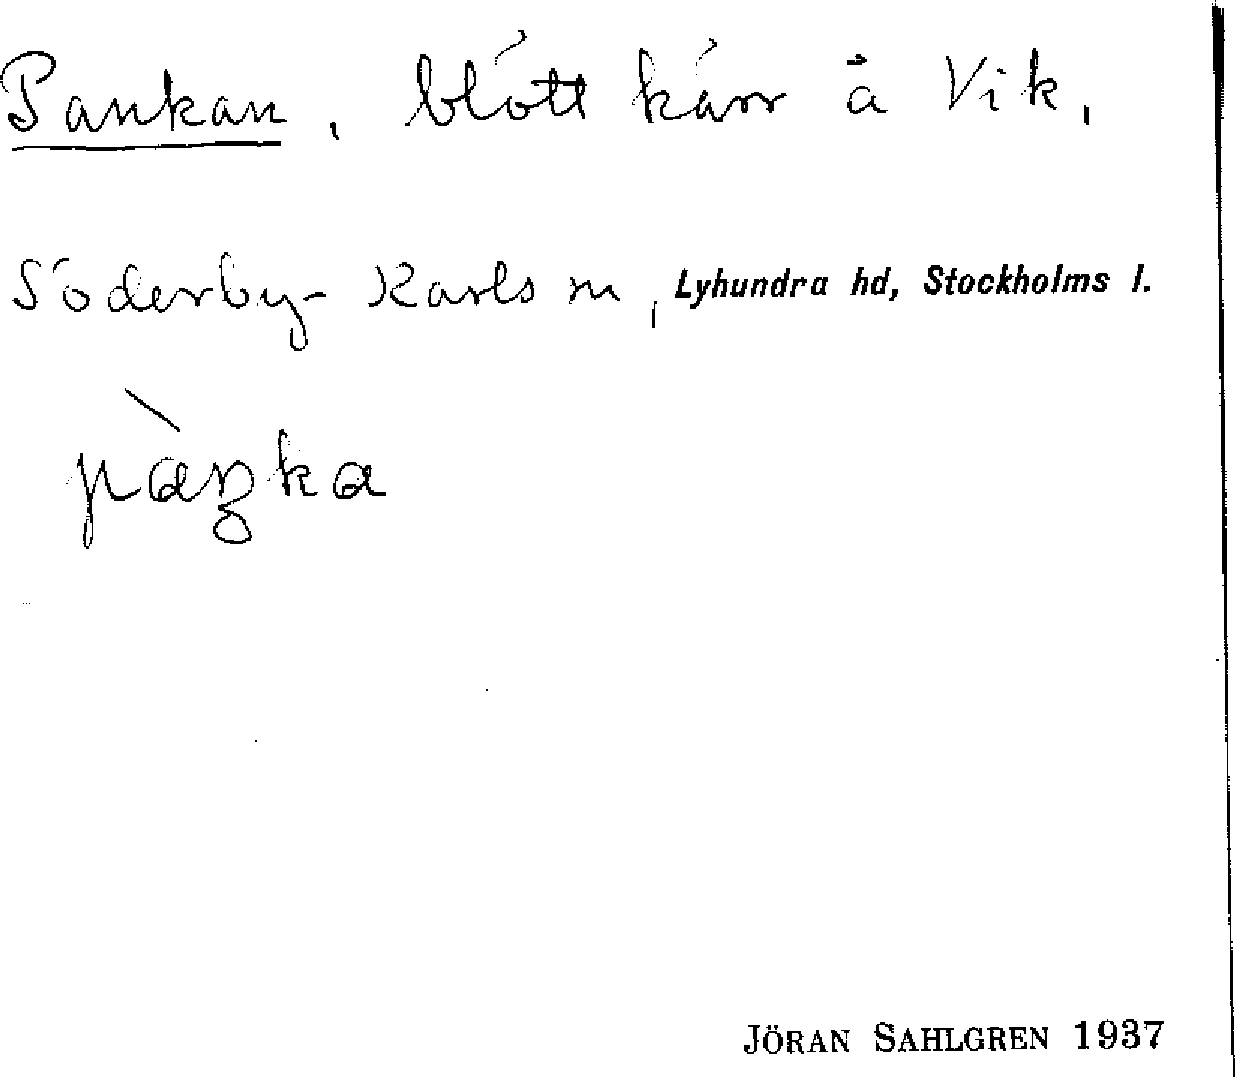 Pankan, blött kärr å Vik,
Söderby-Karls sn, Lyhundra hd, Stockholms l.
pàŋka
JÖRAN SAHLGREN 1937